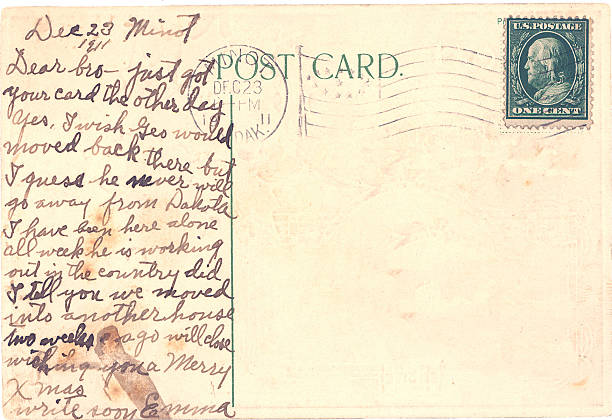 Dec 23 Minot
1911
Dear bro - just got
your card the other day
yes, I wish Geo would
moved back there but
I guess he never will
go away from Dakota
I have been here alone
all week he is working
out in the country did
I tell you we moved
into another house
two weeks ago will close
wishing you a Merry
X mas
write soon Emma
POST CARD.
MINOT
DEC 23
PM
11
DAK.
U.S. POSTAGE
ONE CENT